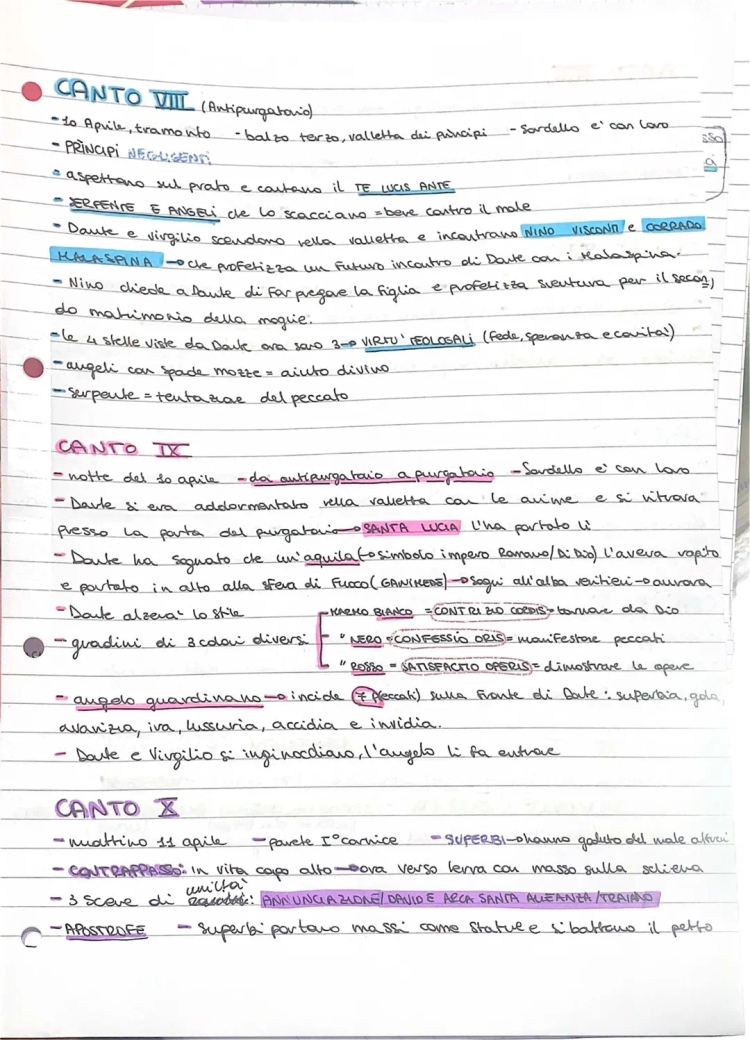 CANTO VIII (Antipurgatorio)
- 10 Aprile, tramonto - balzo terzo, valletta dei principi - Sordello e' con loro
- PRINCIPI NEGLIGENTI
• aspettano sul prato e cantano il TE LUCIS ANTE
- SERPENTE E ANGELI che lo scacciano = bene contro il male
- Dante e virgilio scendono nella valletta e incontrano NINO VISCONTI e CORRADO
MALASPINA → che profetizza un futuro incontro di Dante con i Malaspina.
- Nino chiede a Dante di far pregare la figlia e profetizza sventura per il secon,
do matrimonio della moglie.
- le 4 stelle viste da Dante ora sono 3 → VIRTU' TEOLOGALI (fede, speranza e carita')
- angeli con spade mozze = aiuto divino
- serpente = tentazione del peccato
CANTO IX
- notte del 10 aprile - da antipurgatorio a purgatorio - Sordello e' con loro
- Dante si era addormentato nella valletta con le anime e si ritrova
presso la porta del purgatorio → SANTA LUCIA l'ha portato lì
- Dante ha sognato che un'aquila (→ simbolo impero Romano/Di Dio) l'aveva rapito
e portato in alto alla sfera di fuoco (GANIMEDE) → sogni all'alba veritieri → aurora
- Dante alzera' lo stile
- gradini di 3 colori diversi
MARMO BIANCO = CONTRITIO CORDIS = tornare da Dio
" NERO = CONFESSIO ORIS = manifestare peccati
" ROSSO = SATISFACTIO OPERIS = dimostrare le opere
- angelo guardinano → incide 7 P(eccati) sulla fronte di Dante: superbia, gola,
avarizia, ira, lussuria, accidia e invidia.
- Dante e Virgilio si inginocchiano, l'angelo li fa entrare
CANTO X
- mattino 11 aprile - parete I° cornice - SUPERBI → hanno goduto del male altrui
- CONTRAPPASSO: in vita capo alto → ora verso terra con masso sulla schiena
- 3 scene di umiltà: ANNUNCIAZIONE/DAVID E ARCA SANTA ALLEANZA/TRAIANO
- APOSTROFE - superbi portano massi come statue e si battono il petto